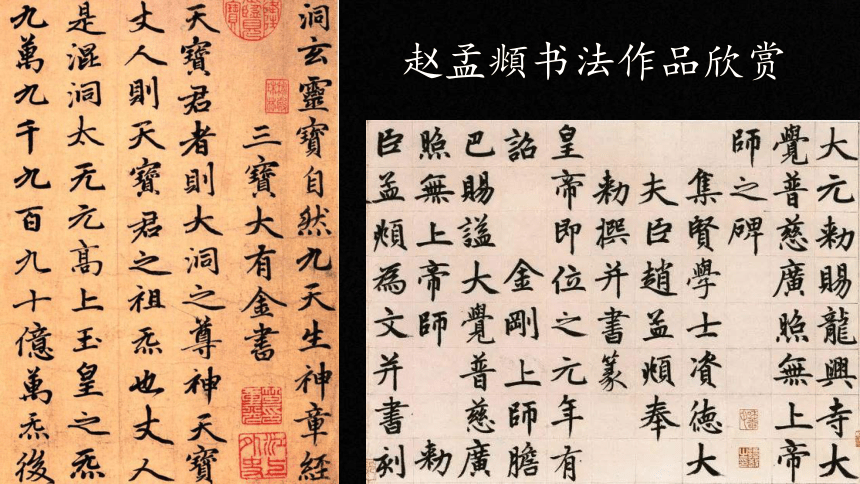 赵孟頫书法作品欣赏
洞玄靈寶自然九天生神章經
三寶大有金書
天寶君者則大洞之尊神天寶
丈人則天寶君之祖炁也丈人
是混洞太无元高上玉皇之炁
九萬九千九百九十億萬炁後
大元敕賜龍興寺大
覺普慈廣照無上帝
師之碑
集賢學士資德大
夫臣趙孟頫奉
敕撰并書篆
皇帝即位之元年有
詔金剛上師膽
巴賜謚大覺普慈廣
照無上帝師敕
臣孟頫為文并書刻